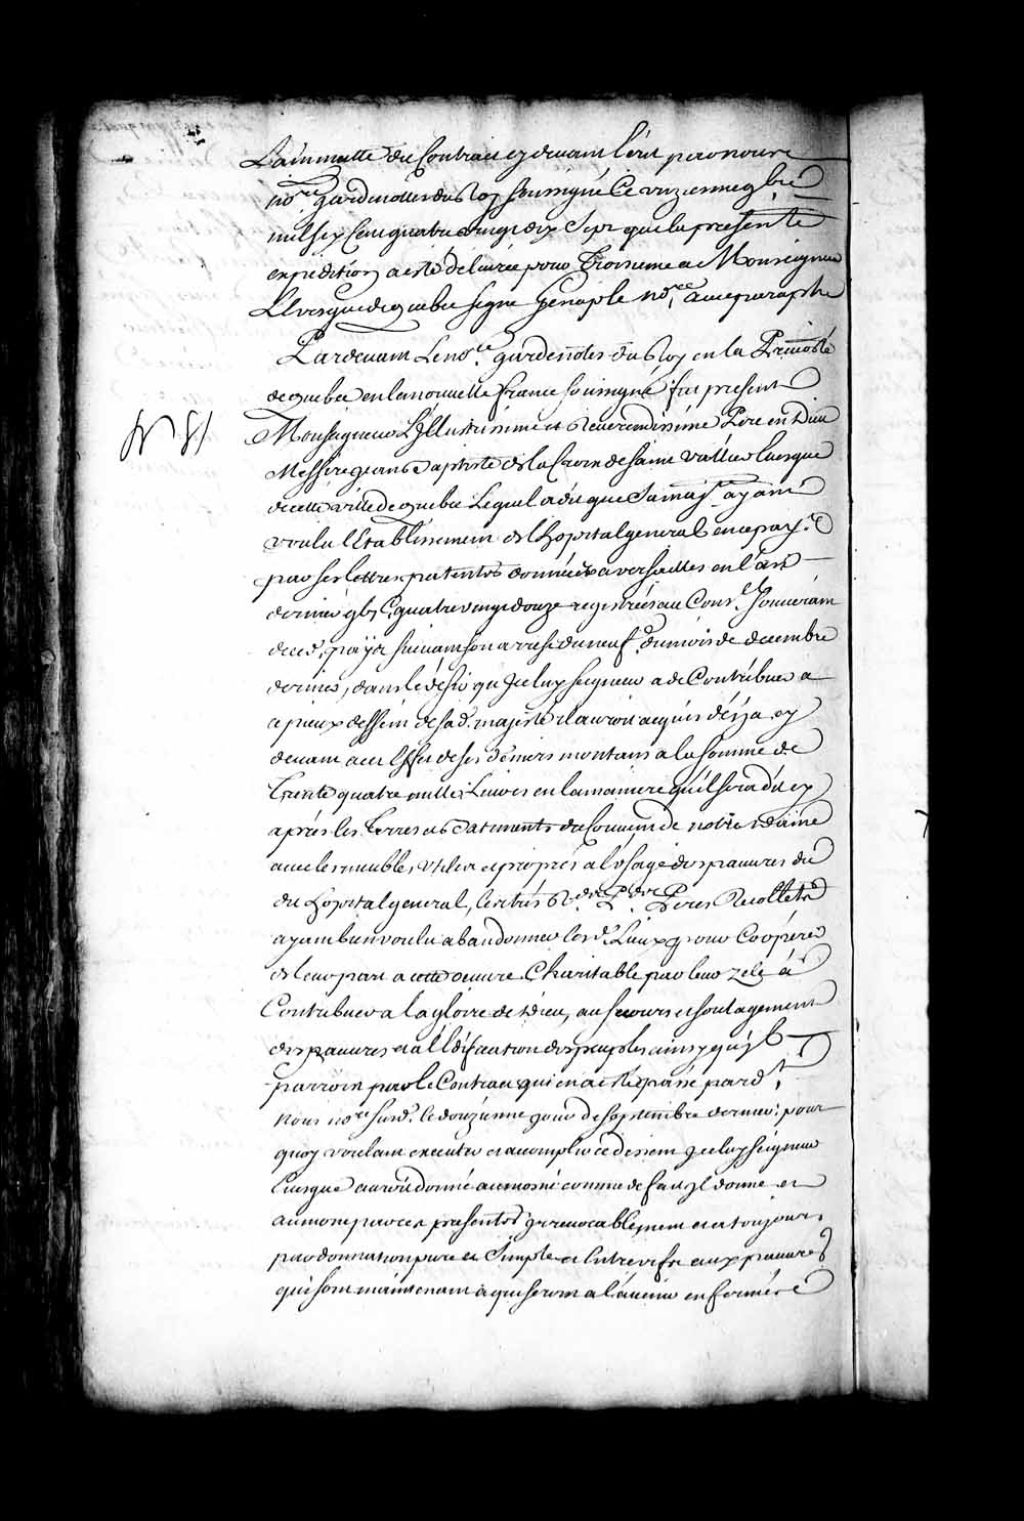 La minutte du Contract cy devant Ecrit par nous
no.re gardenottes du Roy soussigné Ce unziesme 9bre
mil six Cent quatre vingt dix Sept que la presente
expedition a esté delivrée pour Troisieme a Monseigneur
L'Evesque de quebec signé Genaple no.re avec paraphe
Pardevant Le no.re gardenottes du Roy en la Prevosté
de quebec en la nouvelle france soussigné fut present
N 81
Monseigneur L'Illustrissime et Reverendissime Pere en Dieu
Messire Jean Baptiste de la Croix de saint Vallier Evesque
de cette ville de quebec Lequel a dit que Sa maj.té ayant
voulu l'Etablissement de l'hopital general en ce pays
par ses lettres patentes données a versailles en l'an
dernier gbj C quatre vingt douze registrées au Cons.el souverain
de ced. pays suivant son arrest du neuf.e du mois de decembre
dernier, dans le désir qu'Iceluy seigneur a de Contribuer a
ce pieux dessein de sad. majesté il auroit acquis déja cy
devant a cet Effet de ses deniers montans a la somme de
trente quatre mille Livres en la maniere qu'il sera dit cy
aprés les terres et batiments du Couvent de notre dame
avec les meubles, utiles et propres a l'usage des pauvres du
du hopital general, les trés R.ds Peres Recollets
ayant bien voulu abandonner lesd. Lieux pour Coopérer
de leur part a cette oeuvre Charitable par leur zele á
Contribuer a la gloire de Dieu, au secours et soulagement
des pauvres et a l'Edification des peuples ainsy qu'jl
paroist par le Contract qui en a esté passé pard.t
nous no.re susd. le douziesme jour de septembre dernier; pour
quoy voulant executer et accomplir ce dessein Jceluy seigneur
Evesque auroit donné aumosné comme de fait Jl donne et
aumone par ces presentes Irrevocablement et a toujours
par donnation pure et Simple et Entre vifs aux pauvres
qui sont maintenant et qui seront a l'avenir enfermés